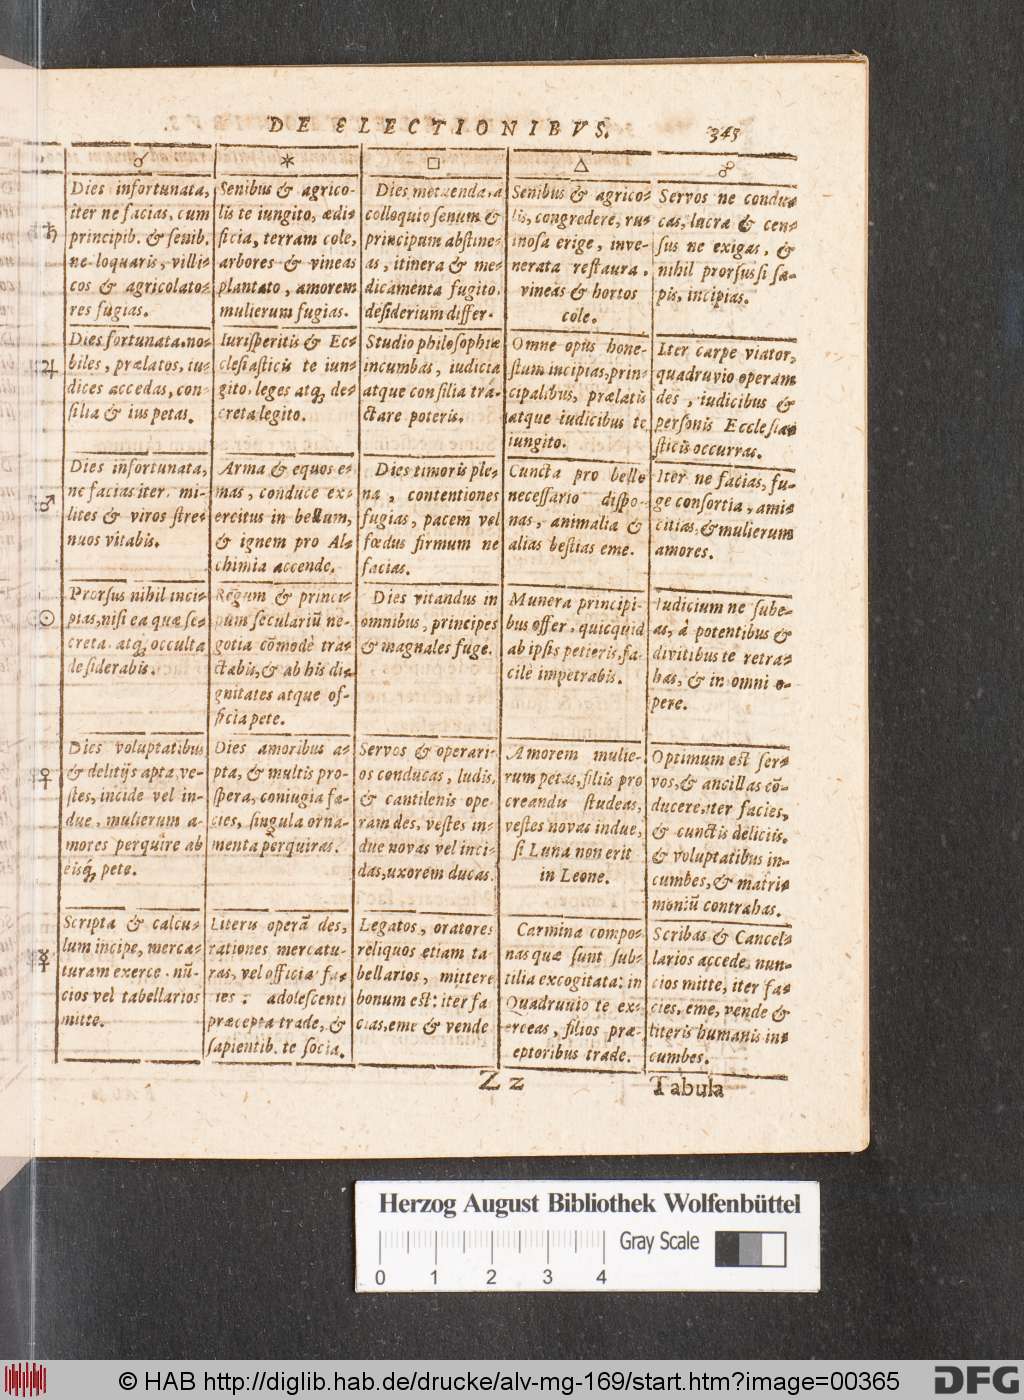 DE ELECTIONIBVS. 343
☌ ⚹ □ △ ☍
♄
Dies infortunata,
iter ne facias, cum
principib. & senib.
ne loquaris, villi-
cos & agricolato-
res fugias.
Senibus & agrico-
lis te iungito, ædi-
ficia, terram cole,
arbores & vineas
plantato, amorem
mulierum fugias.
Dies metuenda, a
colloquio senum &
principum abstine-
as, itinera & me-
dicamenta fugito,
desiderium differ.
Senibus & agrico-
lis, congredere, ru-
inosa erige, inve-
nerata restaura,
vineas & hortos
cole.
Servos ne condu-
cas, lucra & cen-
sus ne exigas, &
nihil prorsus si sa-
pis, incipias.
♃
Dies fortunata, no-
biles, prælatos, iu-
dices accedas, con-
silia & ius petas.
Iurisperitis & Ec-
clesiasticis te iun-
gito, leges atq; de-
creta legito.
Studio philosophiæ
incumbas, iudicia
atque consilia tra-
ctare poteris.
Omne opus hone-
stum incipias, prin-
cipalibus, prælatis
atque iudicibus te
iungito.
Iter carpe viator,
quadruvio operam
des, iudicibus &
personis Ecclesia-
sticis occurras.
♂
Dies infortunata,
ne facias iter, mi-
lites & viros stre-
nuos vitabis.
Arma & equos e-
mas, conduce ex-
ercitus in bellum,
& ignem pro Al-
chimia accende.
Dies timoris ple-
na, contentiones
fugias, pacem vel
fœdus firmum ne
facias.
Cuncta pro bello
necessario dispo-
nas, animalia &
alias bestias eme.
Iter ne facias, fu-
ge consortia, ami-
citias, & mulierum
amores.
☉
Prorsus nihil inci-
pias, nisi ea quæ se-
creta atq; occulta
desiderabis.
Regum & princi-
pum seculariũ ne-
gotia cõmodè tra-
ctabis, & ab his dig-
nitates atque of-
ficia pete.
Dies vitandus in
omnibus, principes
& magnales fuge.
Munera principi-
bus offer, quicquid
ab ipsis petieris, fa-
cilè impetrabis.
Iudicium ne sube-
as, à potentibus &
divitibus te retra-
has, & in omni o-
pere.
♀
Dies voluptatibus
& delitijs apta, ve-
stes, incide vel in-
due, mulierum a-
mores perquire ab
eisq; pete.
Dies amoribus a-
pta, & multis pro-
spera, coniugia fa-
cies, singula orna-
menta perquiras.
Servos & operari-
os conducas, ludis,
& cantilenis ope-
ram des, vestes in-
due novas vel inci-
das, uxorem ducas.
Amorem mulie-
rum petas, filiis pro
creandis studeas,
vestes novas indue,
si Luna non erit
in Leone.
Optimum est ser-
vos, & ancillas cõ-
ducere, iter facies,
& cunctis deliciis,
& voluptatibus in-
cumbes, & matri-
moniũ contrahas.
☿
Scripta & calcu-
lum incipe, merca-
turam exerce, nũ-
cios vel tabellarios
mitte.
Literis operã des,
rationes mercatu-
ras, vel officia fa-
cies: adolescenti
præcepta trade, &
sapientib. te socia.
Legatos, oratores
reliquos etiam ta-
bellarios, mittere
bonum est: iter fa
cias, eme & vende
Carmina compo-
nas quæ sunt sub-
tilia excogitata: in
Quadruuio te ex-
erceas, filios præ-
eptoribus trade.
Scribas & Cancel-
larios accede, nun-
cios mitte, iter fa-
cies, eme, vende &
literis humanis in-
cumbes.
Z z Tabula
Herzog August Bibliothek Wolfenbüttel
Gray Scale
0 1 2 3 4
© HAB http://diglib.hab.de/drucke/alv-mg-169/start.htm?image=00365
DFG